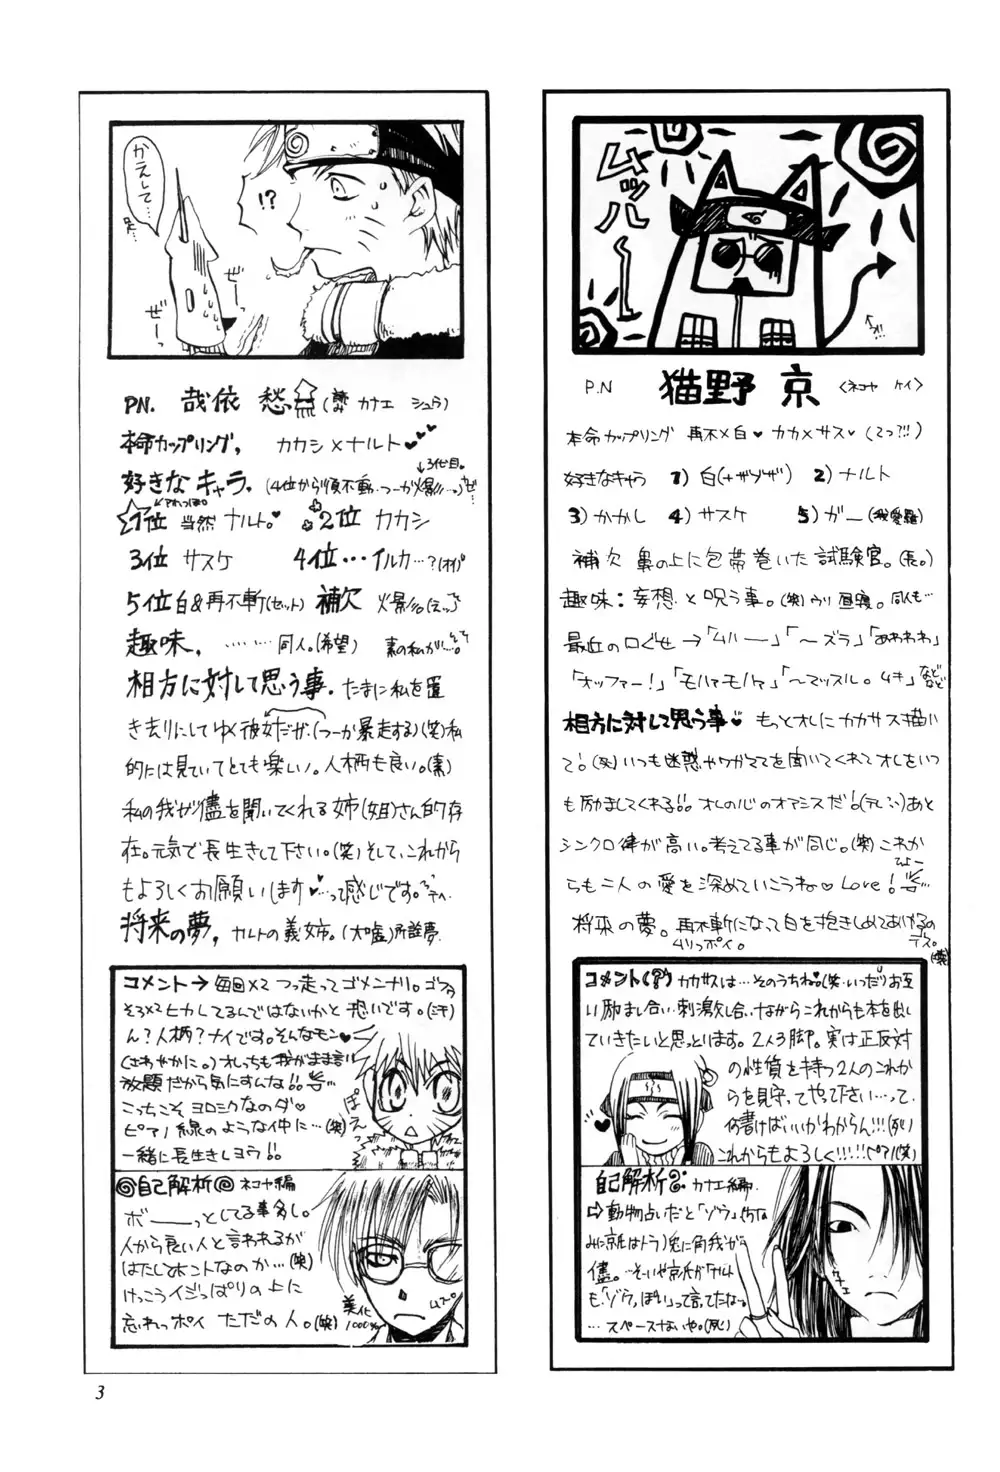 ムッハー
P.N 猫野 京 〈ネコヤ ケイ〉
本命カップリング 再不×白♥ カカ×サス♥ (てっ?!!)
好きなキャラ 1) 白(+ザブザ) 2) ナルト
3) かかし 4) サスケ 5) ガー(我愛羅)
補欠 鼻の上に包帯巻いた試験官。(長。)
趣味:妄想と呪う事。(笑)ウリ 昼寝。同人も…
最近の口ぐせ→「ムハー」「〜ズラ」「あわわわ」
「オッファー!」「モハァモハァ」「〜マッスル。ムキ」などなど
相方に対して思う事♥ もっとオレにカカサス描い
て。(笑)いつも迷惑やワガママを聞いてくれてオレをいつ
も励ましてくれる!!オレの心のオアシスだ!(テレ)あと
シンクロ律が高い。考えてる事が同じ。(笑)これか
らも二人の愛を深めていこうね♥Love!
将来の夢。再不斬になって白を抱きしめてあげるの
デス。
ムリっポイ。
(笑)
コメント(?) カカサスは…そのうちね♥(笑)いつだ!)お互
い励まし合い刺激し合いながらこれからも本を出し
ていきたいと思っとります。2人3脚。実は正反対
の性質を持つ2人のこれか
らを見守ってやって下さい…って、
何書けばいいかわからん!!!(死)
これからもよろしく!!!!!(ピアノ(笑)
自己解析 カナエ編。
⇨動物占いだと「ゾウ」(ちな
みに京はトラ)兎に角我が
儘。…そいや京氏が「ナルト
も「ゾウ」っぽい」って言ってたな。
…スペースないや。(死)
かえして…
!?
ぜーっ
ぜーっ
PN. 哉依 愁 (読み カナエ シュウ)
本命カップリング, カカシ×ナルト♥♥♥
↓3代目。
好きなキャラ。(4位から順不動…つーか火影…。)
1位 当然 ナルト。♥ 2位 カカシ
3位 サスケ 4位…イルカ…?(オイ)
5位 白&再不斬(セット) 補欠 火影
趣味, ………同人。(希望) 素の私が…。
相方に対して思う事. たまに私を置
き去りにしてゆく彼女だが(つーか暴走する)(笑)私
的には見ていてとても楽しい。人柄も良い。(素)
私の我が儘を聞いてくれる姉(姐)さん的存
在。元気で長生きして下さい。(笑)そして、これから
もよろしくお願いします♥…って感じです。
将来の夢, ナルトの義姉。(大嘘)所詮夢。
コメント→毎回×2 つっ走ってゴメンナサリ。ゴファ
そろ×2 ヒカレてるんではないかと恐いです。(汗)
ん?人柄?ナイです。そんなモン♥
(さわやかに。)オレっちも我がまま言い
放題だから気にすんな!!
こっちこそ ヨロシクなのダ♥
ピアノ線のような仲に…(笑)
一緒に長生きしヨウ!!
ぽえっ
自己解析 ネコヤ編
ボーーっとしてる事多し。
人から良い人と言われるが
はたしてホントなのか…(笑)
けっこうイジっぱりの上に
忘れっポイ ただの人。(笑)
美化
1000%
3